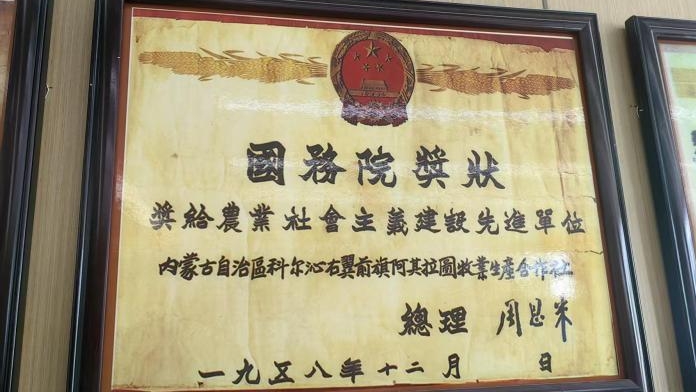 國務院獎狀
獎給農業社會主義建設先進單位
內蒙古自治區科尔沁右翼前旗阿其拉圖牧業生產合作社
總理 周恩来
一九五八年十二月 日